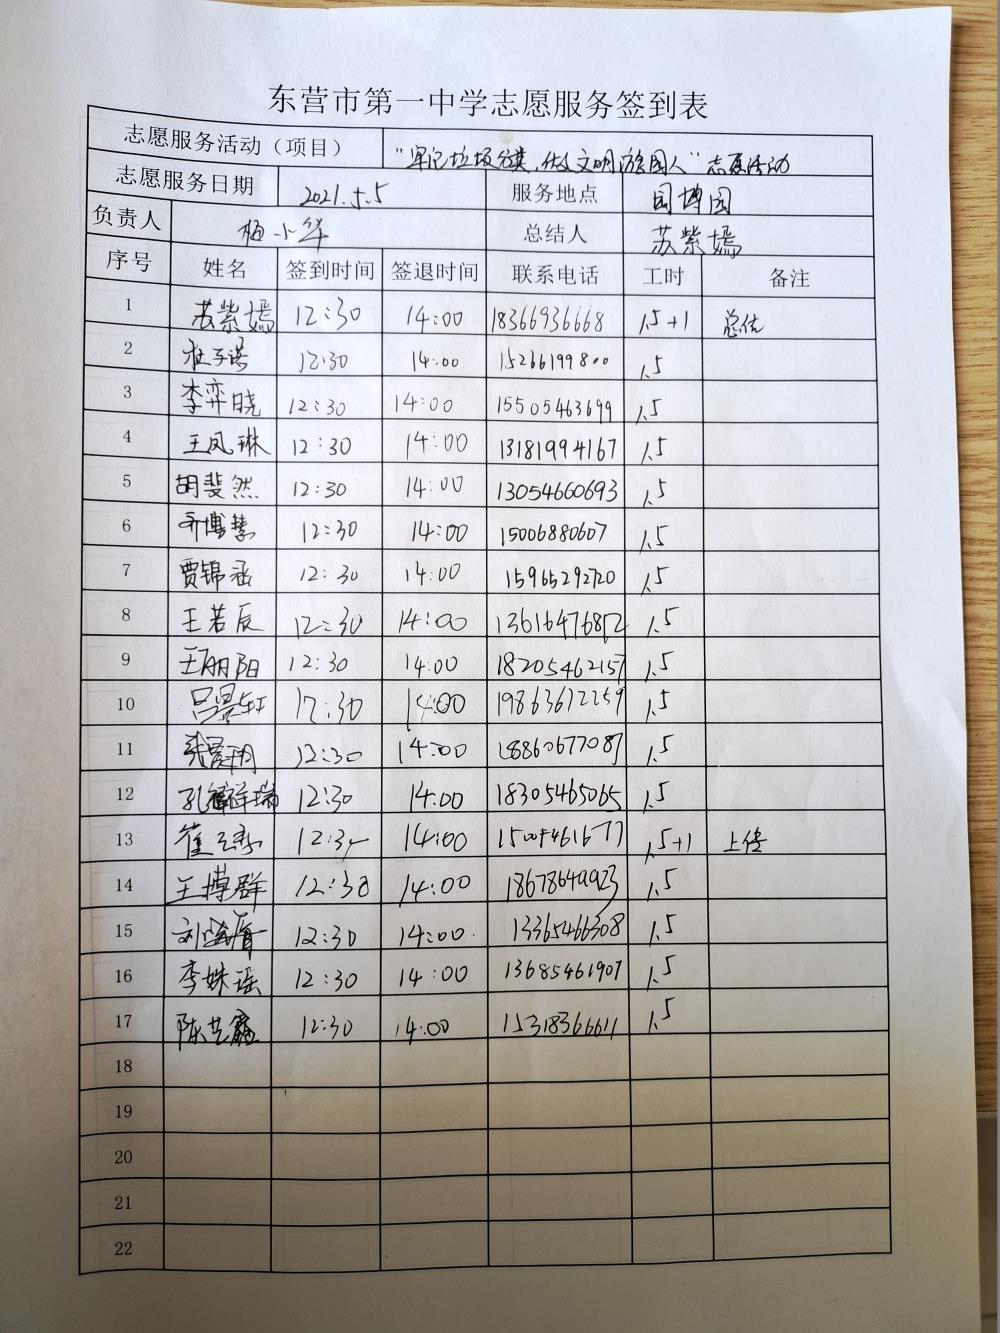 东营市第一中学志愿服务签到表
志愿服务活动（项目） "牢记垃圾分类，做文明游园人"志愿活动
志愿服务日期 2021.5.5 服务地点 园博园
负责人 小华 总结人 苏紫嫣
序号 姓名 签到时间 签退时间 联系电话 工时 备注
1 苏紫嫣 12:30 14:00 18366936668 1.5+1 总结
2 杜子诺 12:30 14:00 15266199800 1.5
3 李弈晓 12:30 14:00 15505463699 1.5
4 王凤琳 12:30 14:00 13181994167 1.5
5 胡斐然 12:30 14:00 13054660693 1.5
6 乔博慧 12:30 14:00 15006880607 1.5
7 贾锦涵 12:30 14:00 15965292720 1.5
8 王若辰 12:30 14:00 1.5
9 王丽阳 12:30 14:00 18205462157 1.5
10 吕昙轩 12:30 14:00 19863612259 1.5
11 12:30 14:00 18860677087 1.5
12 孔祥瑞 12:30 14:00 18305465065 1.5
13 崔 12:3 14:00 15005461677 1.5+1 上传
14 王博群 12:30 14:00 18678649923 1.5
15 刘 12:30 14:00 13365466308 1.5
16 李姝瑶 12:30 14:00 13685461907 1.5
17 陈艺鑫 12:30 14:00 15318366611 1.5
18
19
20
21
22